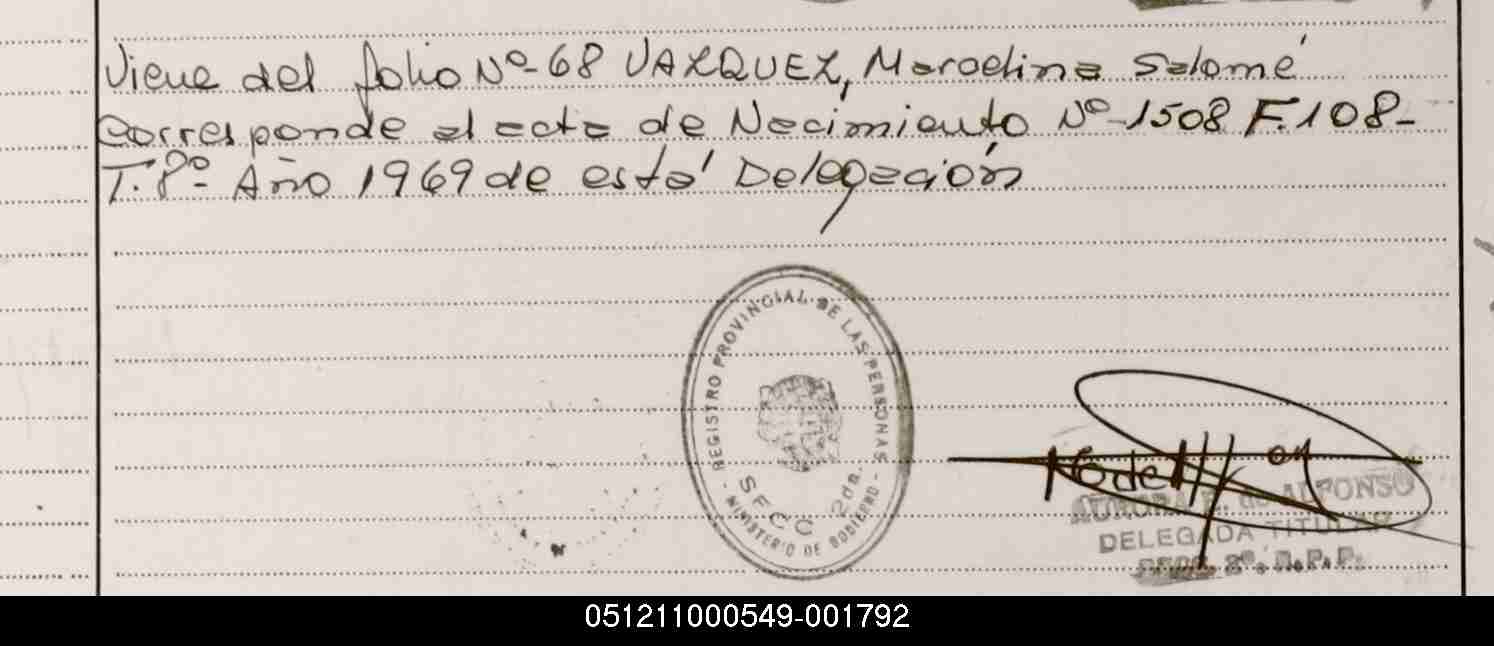 Viene del folio Nº-68 VAZQUEZ, Marcelina Salomé
corresponde al acta de Nacimiento Nº-1508 F.108-
T. 8º- Año 1969 de está Delegación
REGISTRO PROVINCIAL DE LAS PERSONAS
SECC 2da.
- MINISTERIO DE GOBIERNO -
AURORA de ALFONSO
DELEGADA TITULAR
SECC. 2ª. R.P.P.
051211000549-001792